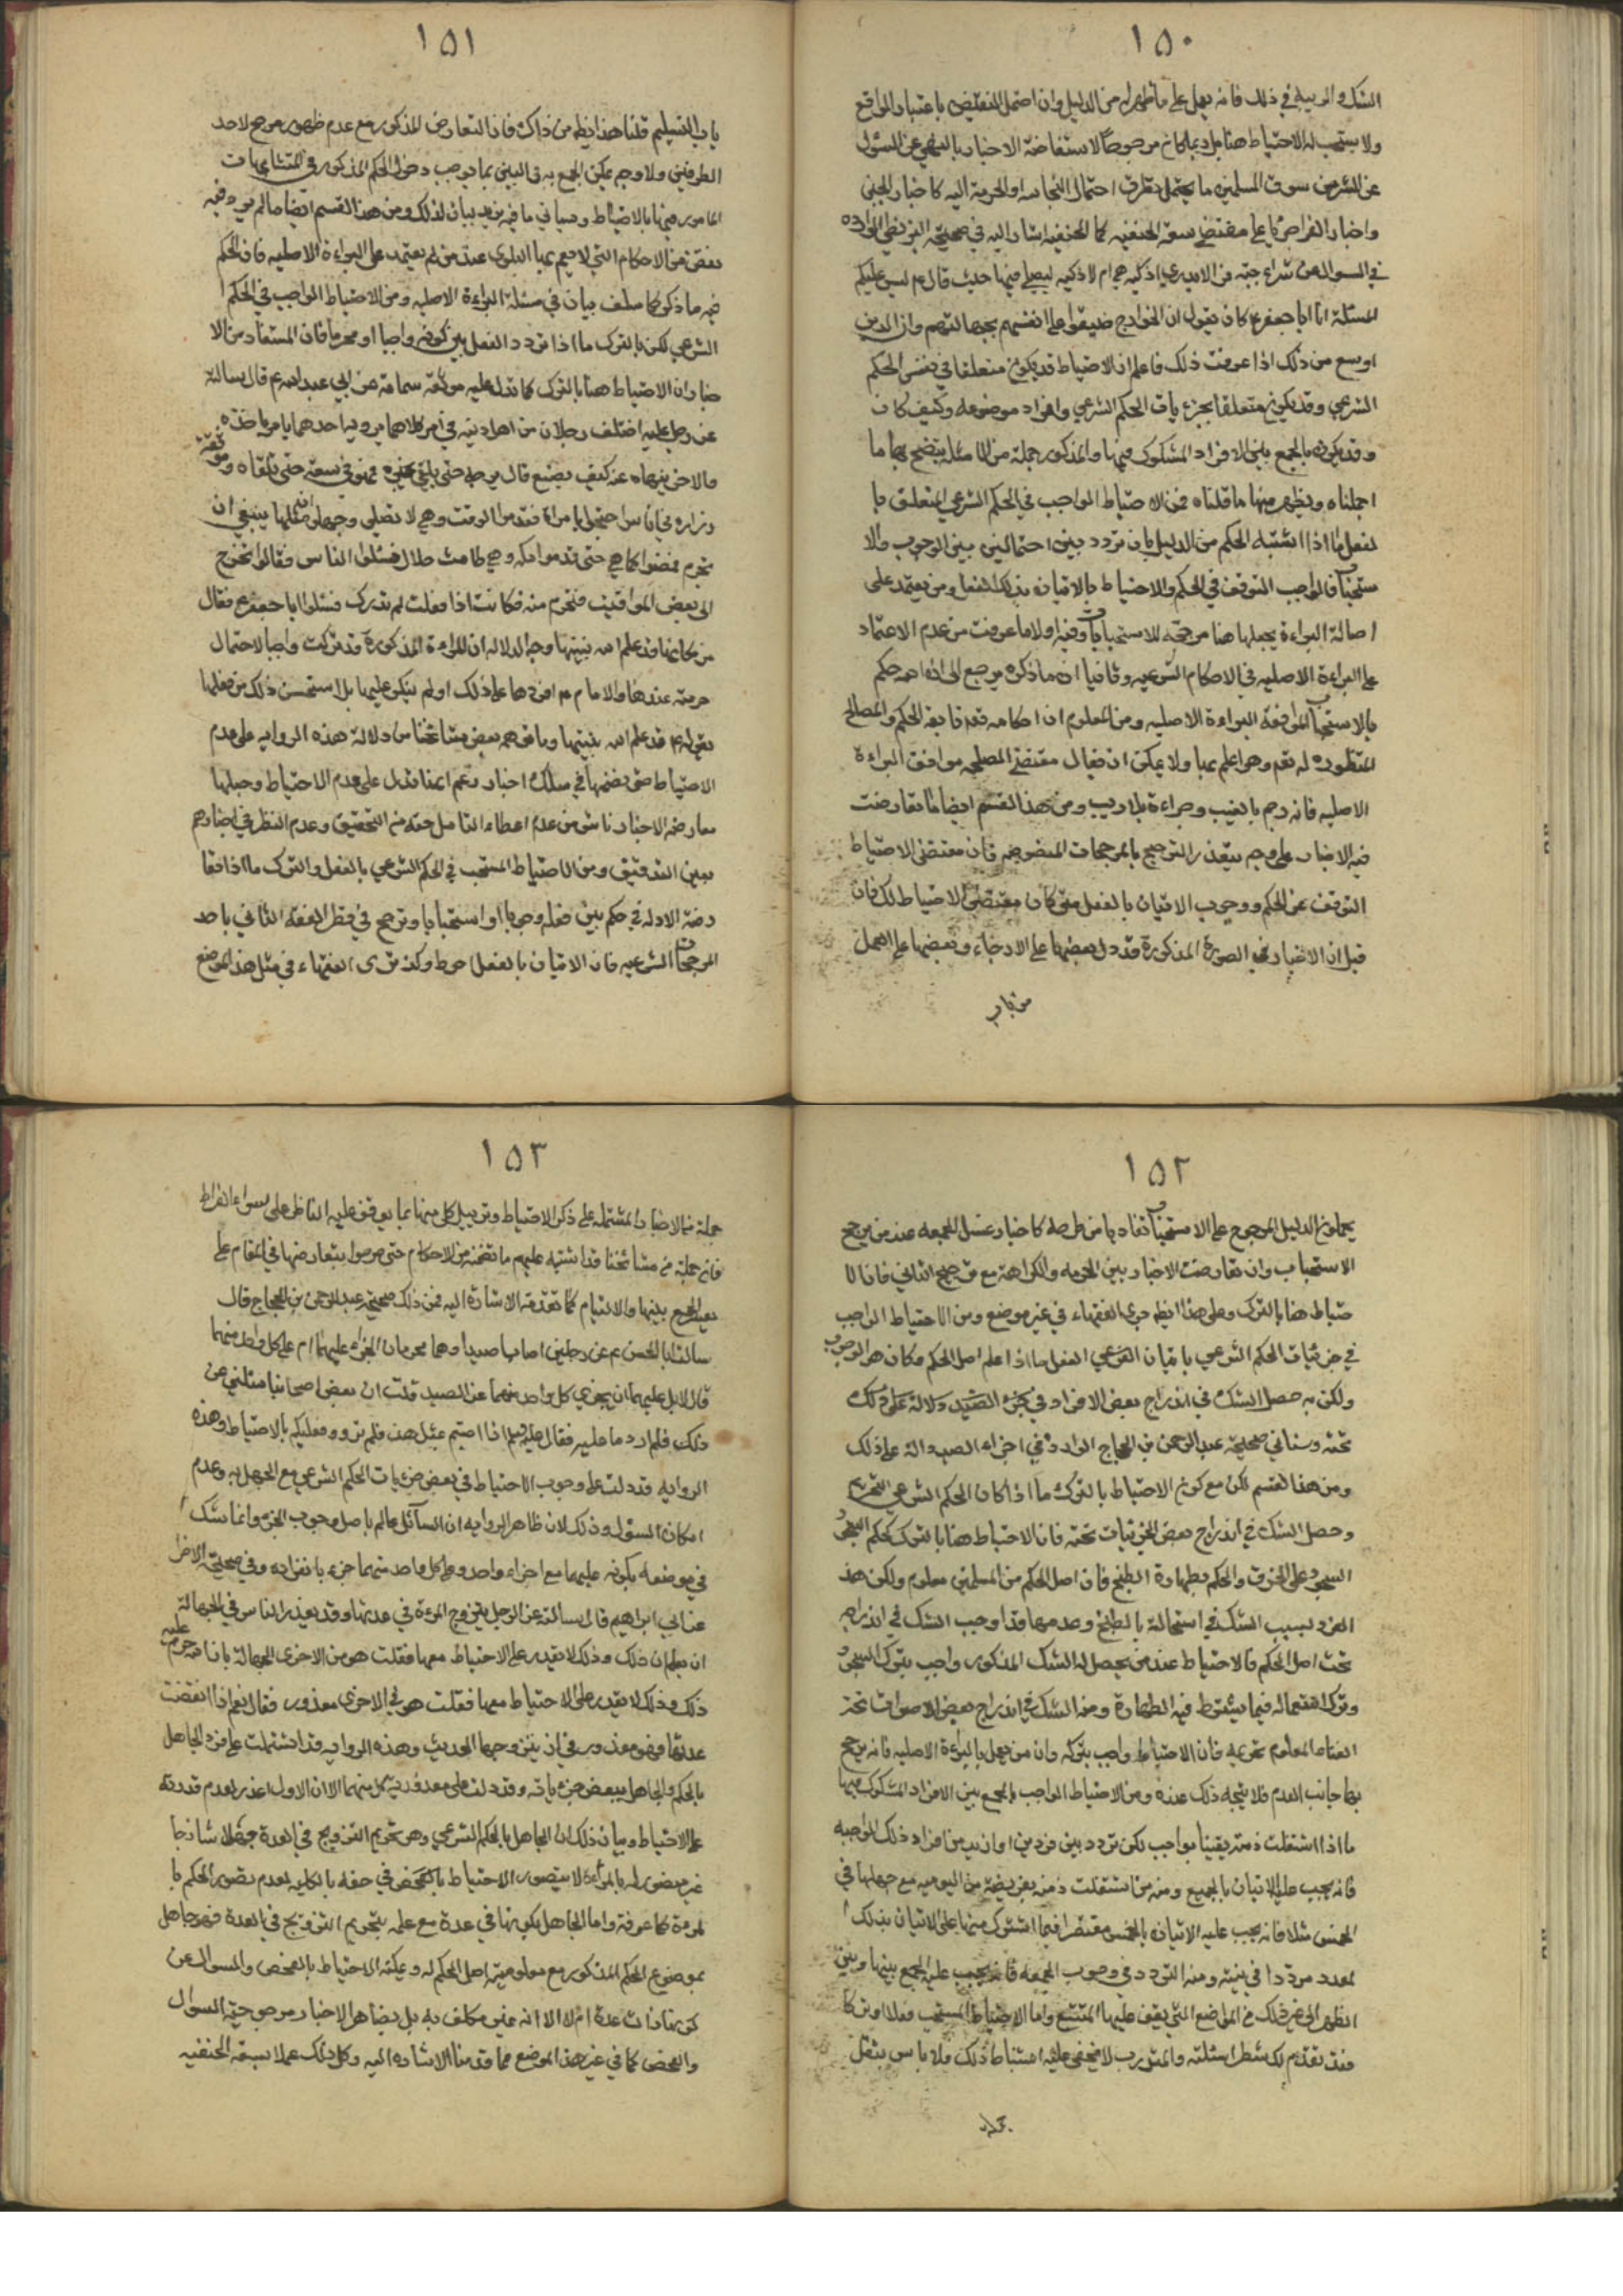 ١٥٠
الشك والريبة في ذلك فانه يعمل على ما ظهر له من الدليل وان احتمل النقيض باعتبار الواقع
ولا يستحب له الاحتياط هنا بل ربما كان مرجوحا لاستفاضة الاخبار بالنهي عن السؤال
عن الشرى من سوق المسلمين ما يحتمل تطرق احتمال النجاسة او الحرمة اليه كاخبار الجبن
واخبار الفراء جريا على مقتضى سعة الحنفية كما اشار اليه في صحيحة البزنطي الواردة
في السؤال عن شراء جبة فرا لا يدري اذكية هي ام لا ذكية ليصلي فيها حيث قال ع ليس عليكم
المسئلة ان ابا جعفر ع كان يقول ان الخوارج ضيقوا على انفسهم بجهالتهم وان الدين
اوسع من ذلك اذا عرفت ذلك فاعلم ان الاحتياط قد يكون متعلقا في نفس الحكم
الشرعي وقد يكون متعلقا بجزءيات الحكم الشرعي وافراد موضوعه وكيف كان
وقد يكون بالجمع بين الافراد المشكوك فيها ولنذكر جملة من الامثلة يتضح بها ما
اجملناه ويظهر منها ما قلناه فمن الاحتياط الواجب في الحكم الشرعي المتعلق با
لفعل ما اذا اشتبه الحكم من الدليل بان تردد بين احتمالين بين الوجوب والا
ستحباب فالواجب التوقف في الحكم والاحتياط بالاتيان بذلك الفعل ومن يعتمد على
اصالة البراءة يجعلها هنا مرجحة للاستحباب وفيه اولا ما عرفت من عدم الاعتماد
على البراءة الاصلية في الاحكام الشرعية وثانيا ان ما ذكره يرجع الى ان الله حكم
بالاستحباب لموافقة البراءة الاصلية ومن المعلوم ان احكامه تعم تابعة للحكم والمصالح
المنظورة له تعم وهو اعلم بها ولا يمكن ان يقال مقتضى المصلحة موافق البراءة
الاصلية فانه رجم بالغيب وجراءة بلا ريب ومن هذا القسم ايضا ما تعارضت
فيه الاخبار على وجه يتعذر الترجيح بالمرجحات المنصوصة فان مقتضى الاحتياط
التوقف عن الحكم ووجوب الاتيان بالفعل متى كان مقتضى الاحتياط ذلك فان
قيل ان الاخبار في الصورة المذكورة قد دل بعضها على الارجاء وبعضها على العمل
من باب
١٥١
باب التسليم قلنا هذا ايضا من ذاك فان التعارض المذكور مع عدم ظهور مرجح لاحد
الطرفين ولا وجه يمكن الجمع به في البين بما يوجب دخول الحكم المذكور في المتشابهات
المامور فيها بالاحتياط وسياتي ما فيه مزيد بيان لذلك ومن هذا القسم ايضا ما لم يرد فيه
نص من الاحكام التي لا يعم بها البلوى عند من لم يعتمد على البراءة الاصلية فان الحكم
فيه ما ذكر كما سلف بيان في مسئلة البراءة الاصلية ومن الاحتياط الواجب في الحكم
الشرعي لكن بالترك ما اذا تردد الفعل بين كونه واجبا او محرما فان المستفاد من الا
خبار ان الاحتياط هنا بالترك كما تدل عليه موثقة سماعة عن ابي عبد الله ع قال سالته
عن رجل عليه اختلف رجلان من اهل دينه في امر كلاهما يرويه احدهما يامر باخذه
والاخر ينهاه عنه كيف يصنع قال يرجئه حتى يلقى من يخبره فهو في سعة حتى يلقاه وموثقة
زرارة في اناس احتجوا بامراة فقدموا الوقت وهي لا تصلى وجهلوا ان مثلها ينبغي ان
تحرم فمضوا كما هي حتى قدموا مكة وهي طامث حلال فسئلوا الناس فقالوا تخرج
الى بعض المواقيت فتحرم منه فكانت اذا فعلت لم تدرك فسئلوا ابا جعفر ع فقال
من مكانها قد علم الله نيتها وجه الدلالة ان المراءة المذكورة قد تركت واجبا لاحتمال
حرمته عندها والامام ع اقرها على ذلك ولم ينكر عليها بل استحسن ذلك من فعلها
بقوله ع قد علم الله بنيتها وما توهمه بعض مشائخنا من دلالة هذه الرواية على عدم
الاحتياط حتى نضمها في سلك اخبار زعم انها تدل على عدم الاحتياط وجعلها
معارضة الاخبار ناش من عدم اعطاء التامل حقه من التحقيق وعدم النظر في اخبارهم
بعين التدقيق ومن الاحتياط المستحب في الحكم الشرعي بالفعل والترك ما اذا تعا
رضت الادلة في حكم بين فعله وجوبا او استحبابا وترجح في نظر الفقيه الثاني باحد
المرجحات الشرعية فان الاتيان بالفعل احوط وكذ ترى الفقهاء في مثل هذا الموضع
١٥٢
يحملون الدليل المرجوح على الاستحباب تفاديا من طرحه كاخبار غسل الجمعة عند من يرجح
الاستحباب وان تعارضت الاخبار بين الحرمة والكراهة مع ترجيح الثاني فان الا
حتياط هنا بالترك وعلى هذا ايضا جرى الفقهاء في غير موضع ومن الاحتياط الواجب
في جزئيات الحكم الشرعي باتيان الفعل ما اذا علم اصل الحكم وكان هو الوجوب
ولكن حصل الشك في اندراج بعض الافراد
تحته وستاتي صحيحة عبد الرحمن بن الحجاج الواردة في اجزاء الصيد دالة على ذلك
ومن هذا القسم لكن مع كون الاحتياط بالترك ما اذا كان الحكم الشرعي التحريم
وحصل الشك في اندراج بعض الجزئيات تحته فان الاحتياط هنا بالترك كحكم
السجود على الخزف والحكم بطهارة الطبخ فان اصل الحكم من المسلمين معلوم ولكن هذ
الفرد بسبب الشك في استحالة بالطبخ وعدمها قد اوجب الشك في اندراجه
تحت اصل الحكم فالاحتياط عند من يحصل له الشك المذكور واجب بترك السجود
وترك استعماله فيما يشترط فيه الطهارة ومنه الشك في اندراج بعض الاصوات تحت
الغناء المعلوم تحريمه فان الاحتياط واجب بتركه وان من يعمل بالبراءة الاصلية فانه يرجح
بها جانب العدم فلا يتجه ذلك عنده ومن الاحتياط الواجب بالجمع بين الافراد المشكوك فيها
ما اذا اشتغلت ذمته يقينا بواجب لكن تردد بين فردين او ازيد من افراد ذلك الواجب
فانه يجب عليه الاتيان بالجميع ومنه من اشتغلت ذمته بفريضة من اليومية مع جهلها في
الخمس مثلا فانه يجب عليه الاتيان بالخمس مقتصرا فيما اشترك منها على الاتيان بذلك
لعدد مرددا في نيته ومنه التردد في وجوب الجمعة فانه يجب عليه الجمع بينها وبين
الظهر الى غير ذلك من المواضع التي يقف عليها المتتبع واما الاحتياط المستحب فعلا او تركا
فقد تقدم لك شطر امثلته والمتدرب لا يخفى عليه استنباط ذلك ولا باس بنقل
جملة
١٥٣
جملة من الاخبار المشتملة على ذكر الاحتياط وتذييل كل منها بما يوقف عليه الناظر على سواء الصراط
فان جملة من مشائخنا قد اشتبه عليهم ما تضمنه من الاحكام حتى صرحوا بتعارضها في المقام على
بعد الجمع بينها والالتيام كما تقدمت الاشارة اليه فمن ذلك صحيحة عبد الرحمن بن الحجاج قال
سالت ابا الحسن ع عن رجلين اصابا صيدا وهما محرمان الجزاء عليهما ام على كل واحد منهما
قال لا بل عليهما ان يجزي كل واحد منهما عن الصيد قلت ان بعض اصحابنا سئلني عن
ذلك فلم ادر ما عليه فقال عليه السلام اذا اصبتم بمثل هذا فلم تدروا فعليكم بالاحتياط وهذه
الرواية قد دلت على وجوب الاحتياط في بعض جزئيات الحكم الشرعي مع الجهل به وعدم
امكان السؤال وذلك لان ظاهر الرواية ان السائل عالم باصل وجوب الجزاء وانما شك
في موضعه بكونه عليهما معا جزاء واحد او على كل واحد منهما جزاء بانفراده وفي صحيحته الاخرى
عن ابي ابراهيم قال سالته عن الرجل يتزوج المرءة في عدتها وقد يعذر الناس في الجهالة
ان يعلم ان ذلك وذلك لا يقدر على الاحتياط معها فقلت هو من الاخرى الجهالة بان الله حرم عليه
ذلك وذلك لا يقدر على الاحتياط معها فقلت هو في الاخرى معذور فقال نعم اذا انقضت
عدتها فهو معذور في ان يتزوجها الحديث وهذه الرواية قد اشتملت على فرد الجاهل
بالحكم والجاهل ببعض جزءياته وقد دلت على معذورية كل منهما الا ان الاول اعذر لعدم قدرته
على الاحتياط وبيان ذلك ان الجاهل بالحكم الشرعي وهو تحريم التزويج في العدة جهلا ساذجا
غير متصور له بالمرة لا يتصور الاحتياط في حقه بالكلية لعدم تصور الحكم با
لمرة كما عرفت واما الجاهل بكونها في عدة مع علمه بتحريم التزويج في العدة فهو جاهل
بموضوع الحكم المذكور مع معلومية اصل الحكم له ويمكنه الاحتياط بالفحص والسؤال عن
كونها ذات عدة ام لا الا انه غير مكلف به بل ظاهر الاخبار مرجوحية السؤال
والفحص كما في غير هذا الموضع مما قدمنا الاشارة اليه وكل ذلك عملا بسعة الحنفية